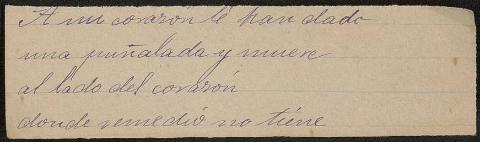 A mi corazón lé han dado
una puñalada y muere
al lado del corazón
donde remedió no tiéne